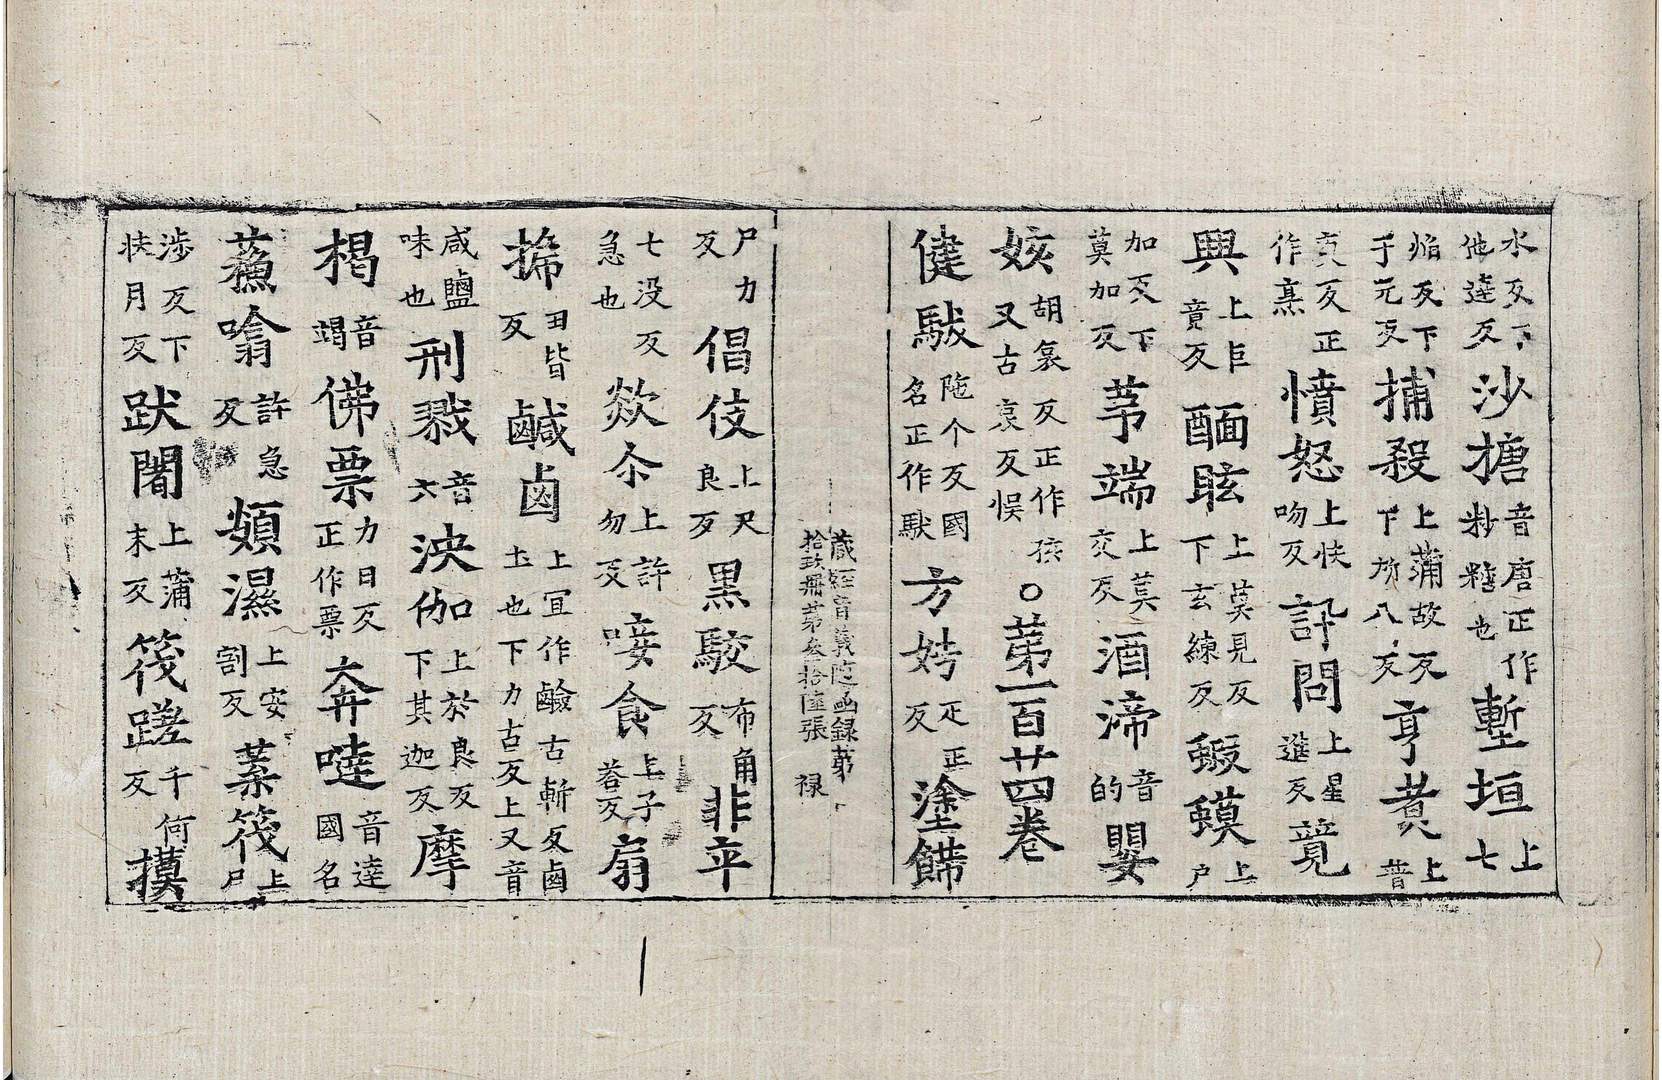 水反下他達反沙搪音唐正作粆糖也塹垣上七
焔反下于元反捕殺上蒲故反下所八反亨煑上普
庚反正作烹憤怒上扶吻反訙問上星進反競
興上巨竟反酾眩上莫見反下玄練反蝦蟆上戶
加反下莫加反茅端上莫交反酒渧音的嬰
姟胡哀反正作孩又古哀反悮○苐一百廿四卷
健馱陁个反國名正作䭾方娉疋正反塗𩜰
藏經音義隨函録苐
拾玖冊苐叁拾陸張 禄
尸力反倡伎上尺良反黒駮布角反非平
七没反急也欻尒上許勿反唼食上子荅反扇
搋丑皆反鹹鹵上冝作鹼古斬反鹵土也下力古反上又音
咸鹽味也刑戮音六泱伽上於良反下其迦反摩
楬音竭佛票力日反正作㮚奔噠音達國名
蘓噏許急反頞濕上安割反葉筏上尸
渉反下扶月反䟦闍上蒲末反筏蹉千何反摸